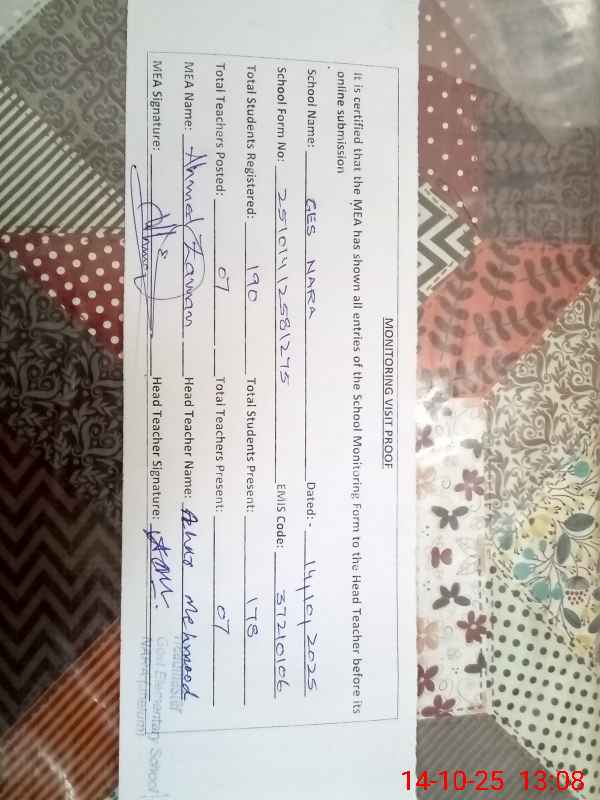 MONITORING VISIT PROOF
It is certified that the MEA has shown all entries of the School Monitoring Form to the Head Teacher before its
online submission
School Name: GES NARA Dated: - 14/10/2025
School Form No: 25101412581275 EMIS Code: 37210106
Total Students Registered: 190 Total Students Present: 178
Total Teachers Posted: 07 Total Teachers Present: 07
MEA Name: Ahmad Zaman Head Teacher Name: Azhar Mehmood
MEA Signature: Head Teacher Signature:
Headmaster
Govt Elementary School
NARA
14-10-25 13:08